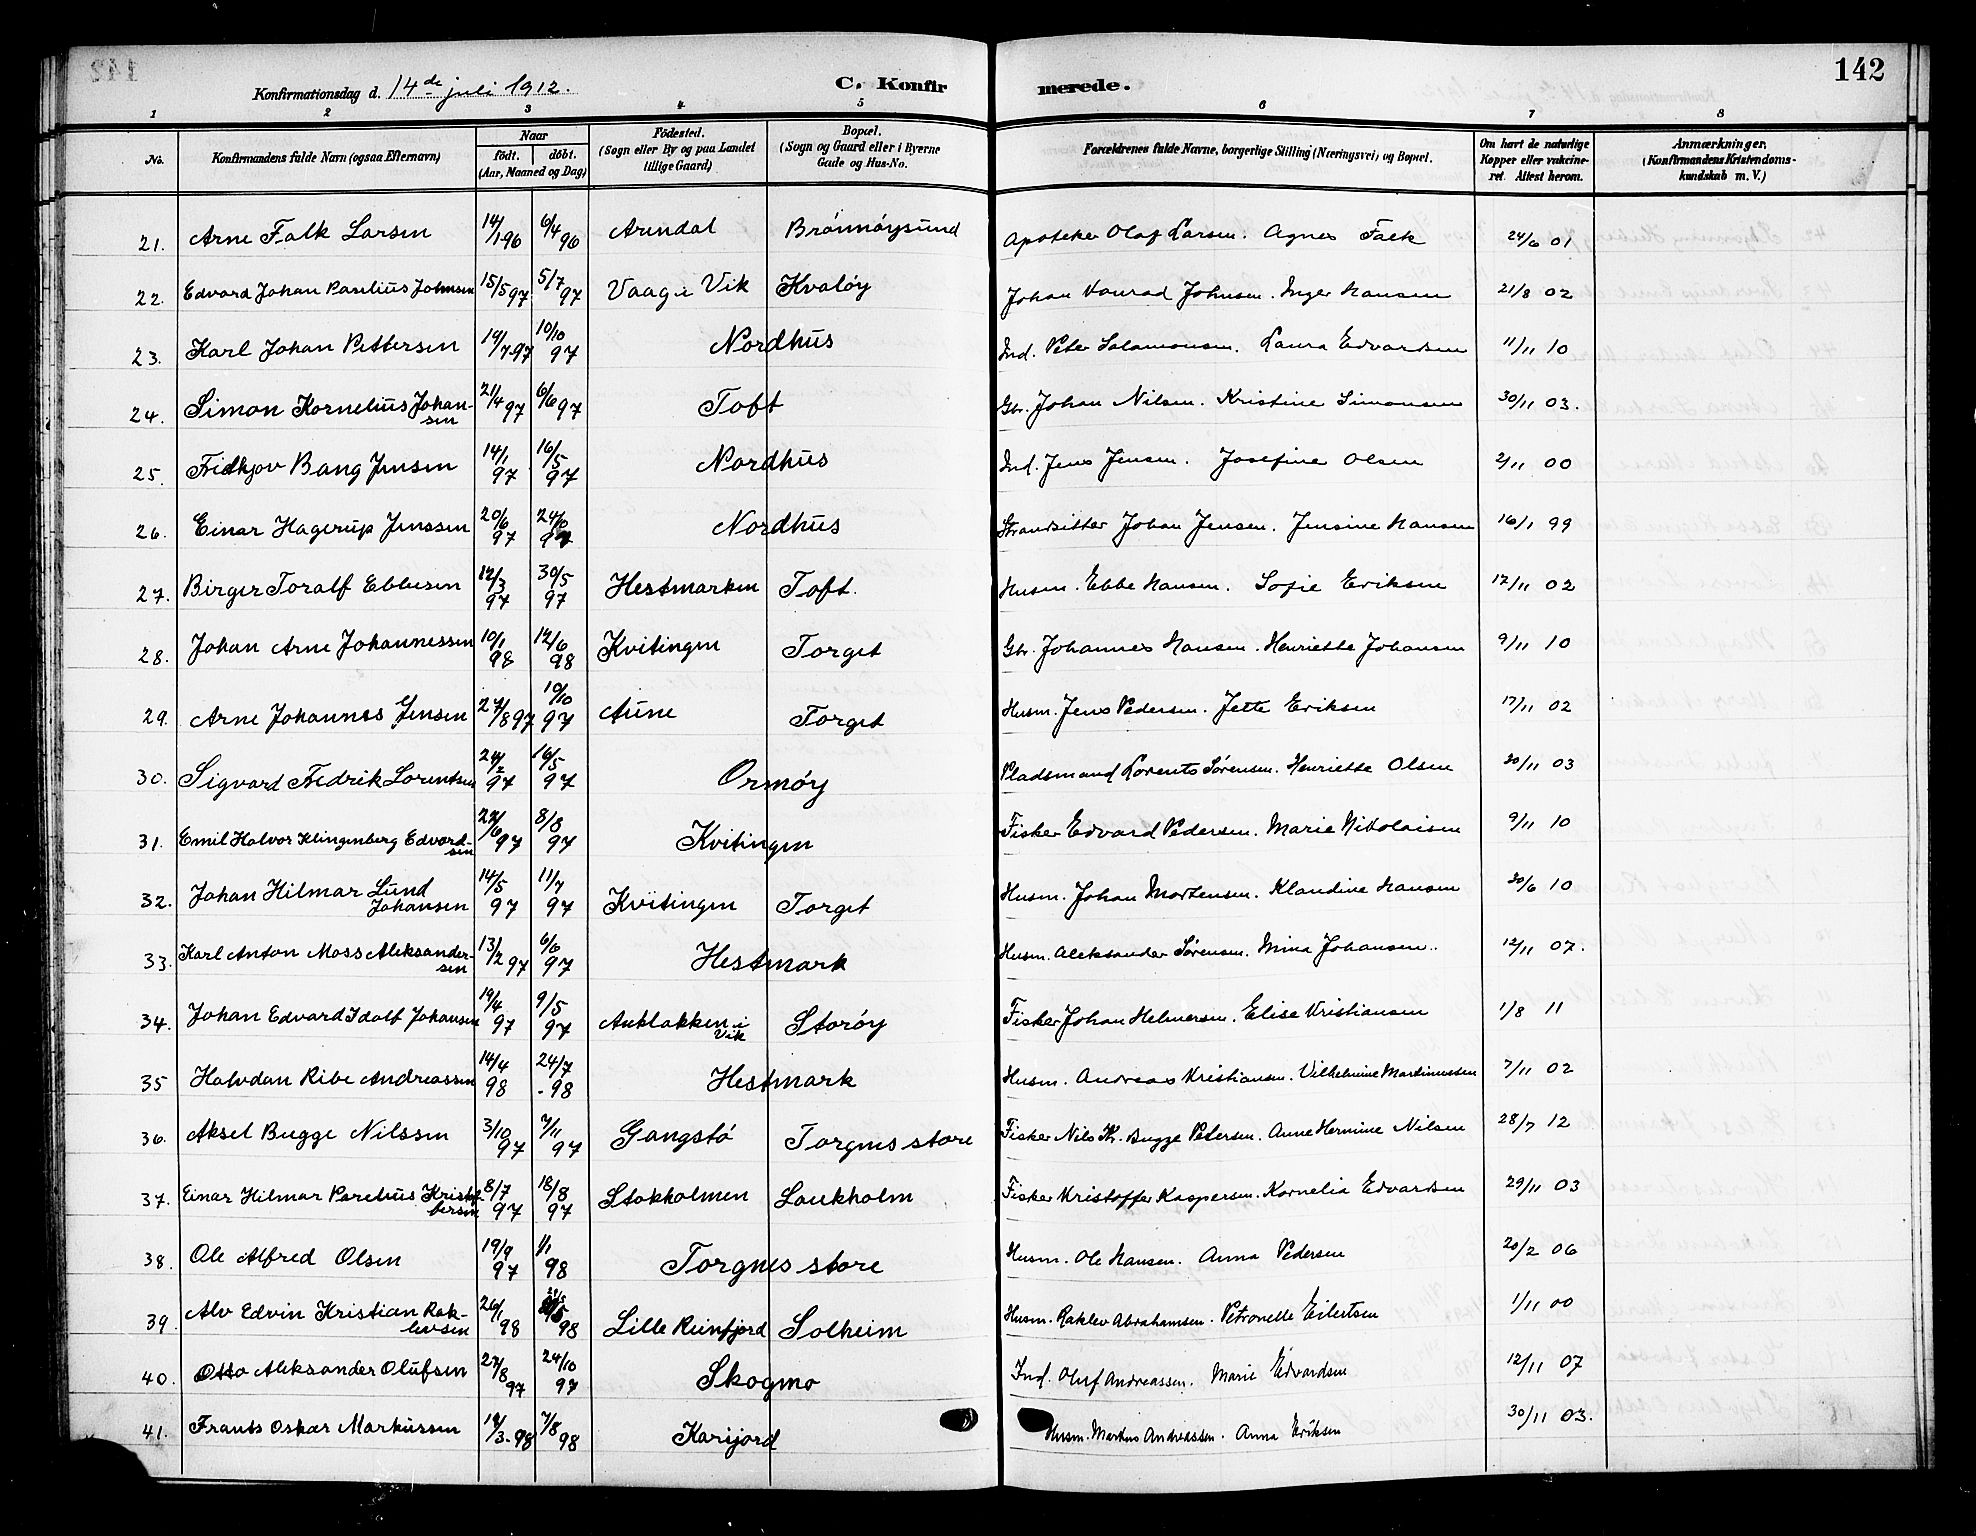 142
Konfirmationsdag d. 14de juli 1912. C. Konfirmerede.
1 2 3 4 5 6 7 8
No. Konfirmandens fulde Navn (ogsaa Efternavn) Naar født. døbt. (Aar, Maaned og Dag) Fødested. (Sogn eller By og paa Landet tillige Gaard) Bopæl. (Sogn og Gaard eller i Byerne Gade og Hus-No. Forældrenes fulde Navne, borgerlige Stilling (Næringsvei) og Bopæl. Om havt de naturlige Kopper eller vakcineret. Attest herom. Anmærkninger. (Konfirmandens Kristendomskundskab m. V.)
21. Arne Falk Larsen 14/1 96 6/4 96 Arendal Brønnøysund Apoteker Olaf Larsen. Agnes Falk 24/6 01
22. Edvard Johan Paulius Johnsen 15/5 97 5/7 97 Vaag i Vik Kvaløy Johan Konrad Johnsen. Inger Hansen 21/8 02
23. Karl Johan Pettersen 19/7 97 10/10 97 Nordhus Ind. Peter Salamonsen. Laura Edvardsen 11/11 10
24. Simon Kornelius Johansen 21/4 97 6/6 97 Toft Gbr. Johan Nilsen. Kristine Simonsen 30/11 03.
25. Fridhjov Bang Jensen 14/1 97 16/5 97 Nordhus Ind. Jens Jensen. Josefine Olsen 2/11 00
26. Einar Hagerup Jenssen 20/6 97 24/10 97 Nordhus Strandsitter Johan Jensen. Jensine Hansen 16/1 99
27. Birger Toralf Ebbesen 12/3 97 30/5 97 Hestmarken Toft. Husm. Ebbe Hansen. Sofie Eriksen 12/11 02
28. Johan Arne Johannessen 10/1 98 12/6 98 Kvitingen Torget Gbr. Johannes Hansen. Henriette Johansen 9/11 10
29. Arne Johannes Jensen 27/8 97 10/10 97 Aune Torget Husm. Jens Pedersen. Jette Eriksen 17/11 02
30. Sigvard Fredrik Lorentsen 24/2 97 16/5 97 Ormøy Pladsmand Lorents Sørensen. Henriette Olsen 20/11 03
31. Emil Halvor Klingenberg Edvardsen 27/6 97 8/8 97 Kvitingen Fisker Edvard Pedersen. Marie Nikolaisen 9/11 10
32. Johan Hilmar Lund Johansen 14/5 97 11/7 97 Kvitingen Torget Husm. Johan Mortensen. Klaudine Hansen 20/6 10
33. Karl Anton Moss Aleksandersen 13/2 97 6/6 97 Hestmark Husm. Aleksander Sørensen. Mina Johansen. 12/11 07.
34. Johan Edvard Idolf Johansen 19/4 97 9/5 97 Auklakken i Vik Storøy Fisker Johan Helmersen. Elise Kristiansen 1/8 11
35 Halvdan Ribe Andreassen 14/4 98 24/7 -98 Hestmark Husm. Andreas Kristiansen. Vilhelmine Martinussen 7/11 02
36. Aksel Bugge Nilssen 3/10 97 7/11 97 Gangstø Torgnes store Fisker Nils Kr. Bugge Petersen. Anne Hermine Nilsen 28/7 12
37. Einar Hilmar Parelius Kristofbersen 8/7 97 18/8 97 Stokholmen Laukholm Fisker Kristoffer Kaspersen. Kornelia Edvardsen 29/11 03
38. Ole Alfred Olsen 19/9 97 1/1 98 Torgnes store Husm. Ole Hansen. Anna Pedersen 20/2 06
39. Alv Edvin Kristian Raklevsen 26/1 98 98 Lille Reinfjord Solheim Husm. Raklev Abrahamsen. Petronelle Eilertsen 1/11 00
40. Otto Aleksander Olufsen 27/8 97 24/10 97 Skogmo Ind. Oluf Andreassen. Marie Edvardsen 12/11 07
41. Frants Oskar Markussen 19/3-98 7/8 98 Karijord Husm. Markus Andreassen. Anna Eriksen 30/11 03.